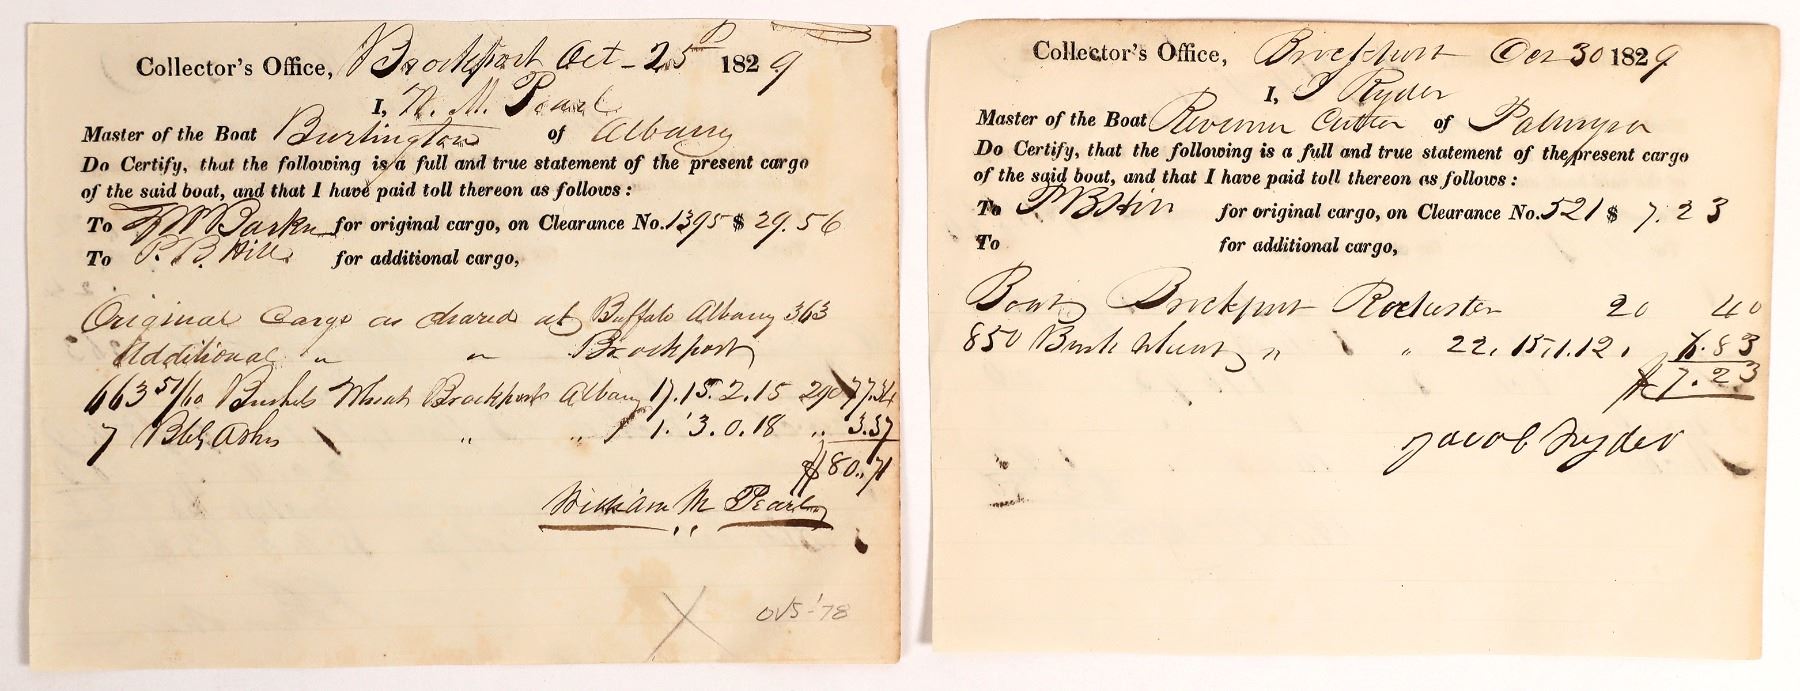 Collector's Office, Brockport Oct - 25 1829
I, W. M. Pearl
Master of the Boat Burlington of Albany
Do Certify, that the following is a full and true statement of the present cargo
of the said boat, and that I have paid toll thereon as follows:
To Barker for original cargo, on Clearance No. 1395 $ 29.56
To P. B. Hill for additional cargo,
Original Cargo as cleared at Buffalo Albany 363
Additional " " Brockport
663 51/60 Bushels Wheat Brockport Albany 17.15.2.15 290 77.34
7 Bbls Ashes " " 1.3.0.18 " 3.37
$80.71
William M Pearl
OVS-'78
Collector's Office, Brockport Oct 30 1829
I, J Ryder
Master of the Boat Revenue Cutter of Palmyra
Do Certify, that the following is a full and true statement of the present cargo
of the said boat, and that I have paid toll thereon as follows:
To P B Hill for original cargo, on Clearance No. 521 $ 7.23
To for additional cargo,
Boat Brockport Rochester 20 40
850 Bush Wheat " " 22.15.1.12. 6.83
$7.23
Jacob Ryder